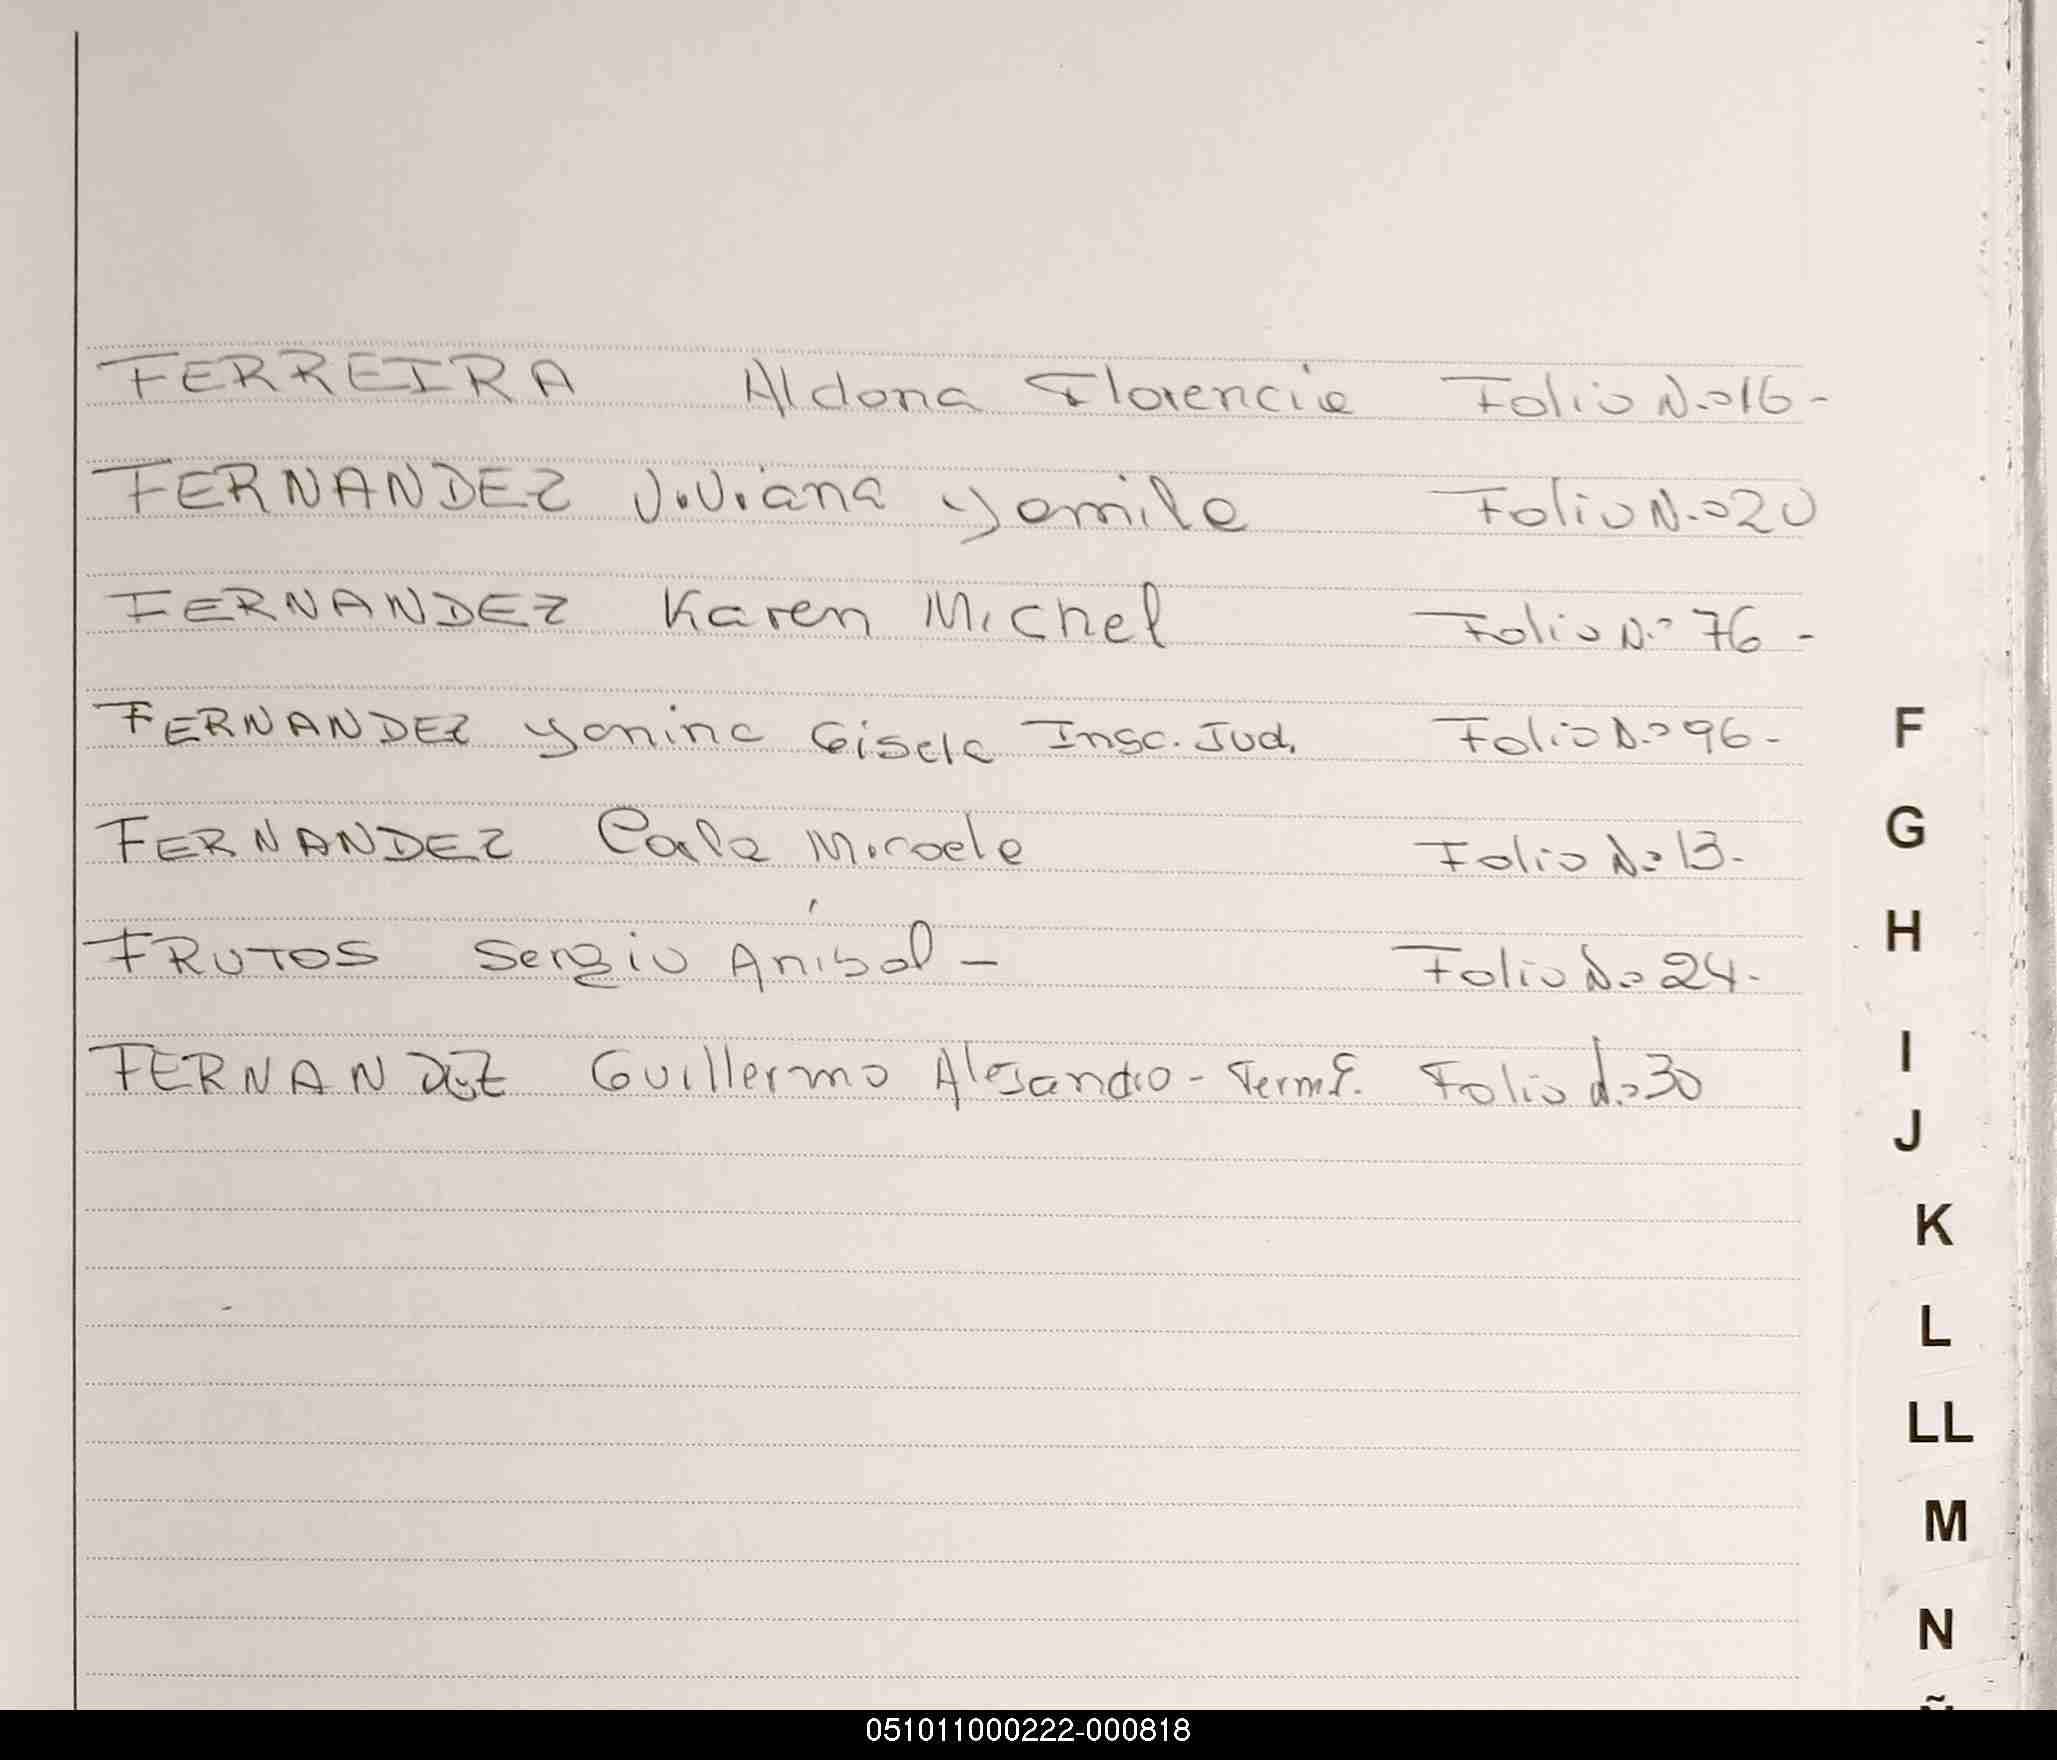 FERREIRA Aldana Florencia Folio N.º 16-
FERNANDEZ Viviana Yamile Folio N.º 20
FERNANDEZ Karen Michel Folio N.º 76 -
FERNANDEZ Yanina Gisela Insc. Jud. Folio N.º 96-
FERNANDEZ Carla Micaela Folio N.º 13-
FRUTOS Sergio Aníbal - Folio N.º 24-
FERNANDEZ Guillermo Alejandro - Folio N.º 30
F
G
H
I
J
K
L
LL
M
N
051011000222-000818